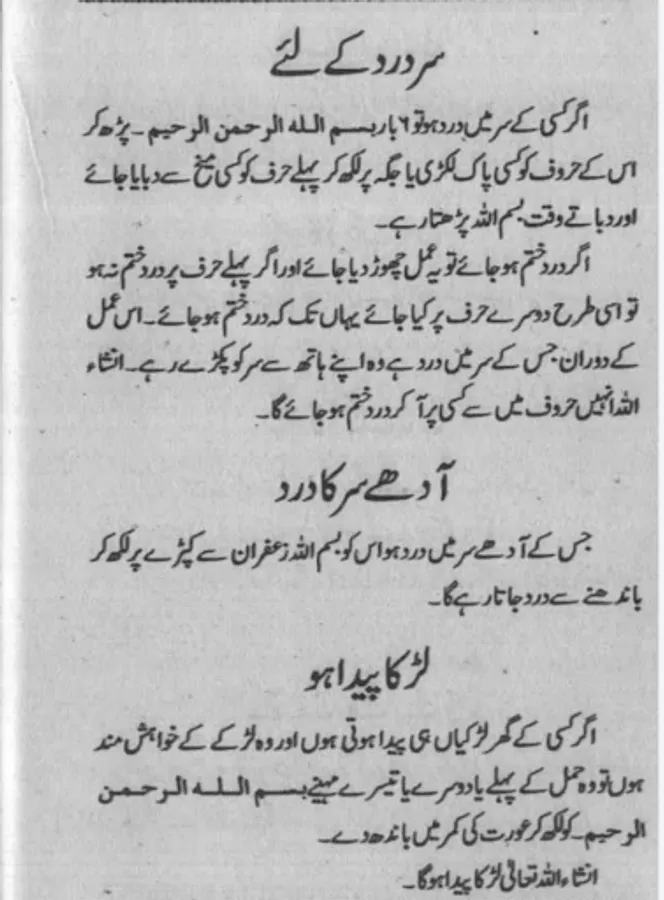 سر درد کے لئے
اگر کسی کے سر میں درد ہو تو ۶ بار بسم اللہ الرحمن الرحیم ۔ پڑھ کر
اس کے حروف کو کسی پاک لکڑی یا جگہ پر لکھ کر پہلے حرف کو کسی میخ سے دبایا جائے
اور دباتے وقت بسم اللہ پڑھتا رہے۔
اگر درد ختم ہو جائے تو یہ عمل چھوڑ دیا جائے اور اگر پہلے حرف پر درد ختم نہ ہو
تو اسی طرح دوسرے حرف پر کیا جائے یہاں تک کہ درد ختم ہو جائے۔ اس عمل
کے دوران جس کے سر میں درد ہے وہ اپنے ہاتھ سے سر کو پکڑے رہے۔ انشاء
اللہ انہیں حروف میں سے کسی پر آ کر درد ختم ہو جائے گا۔
آدھے سر کا درد
جس کے آدھے سر میں درد ہو اس کو بسم اللہ زعفران سے کپڑے پر لکھ کر
باندھنے سے درد جاتا رہے گا۔
لڑکا پیدا ہو
اگر کسی کے گھر لڑکیاں ہی پیدا ہوتی ہوں اور وہ لڑکے کے خواہش مند
ہوں تو وہ حمل کے پہلے یا دوسرے یا تیسرے مہینے بسم اللہ الرحمن
الرحیم۔ کو لکھ کر عورت کی کمر میں باندھ دے۔
انشاء اللہ تعالیٰ لڑکا پیدا ہوگا۔